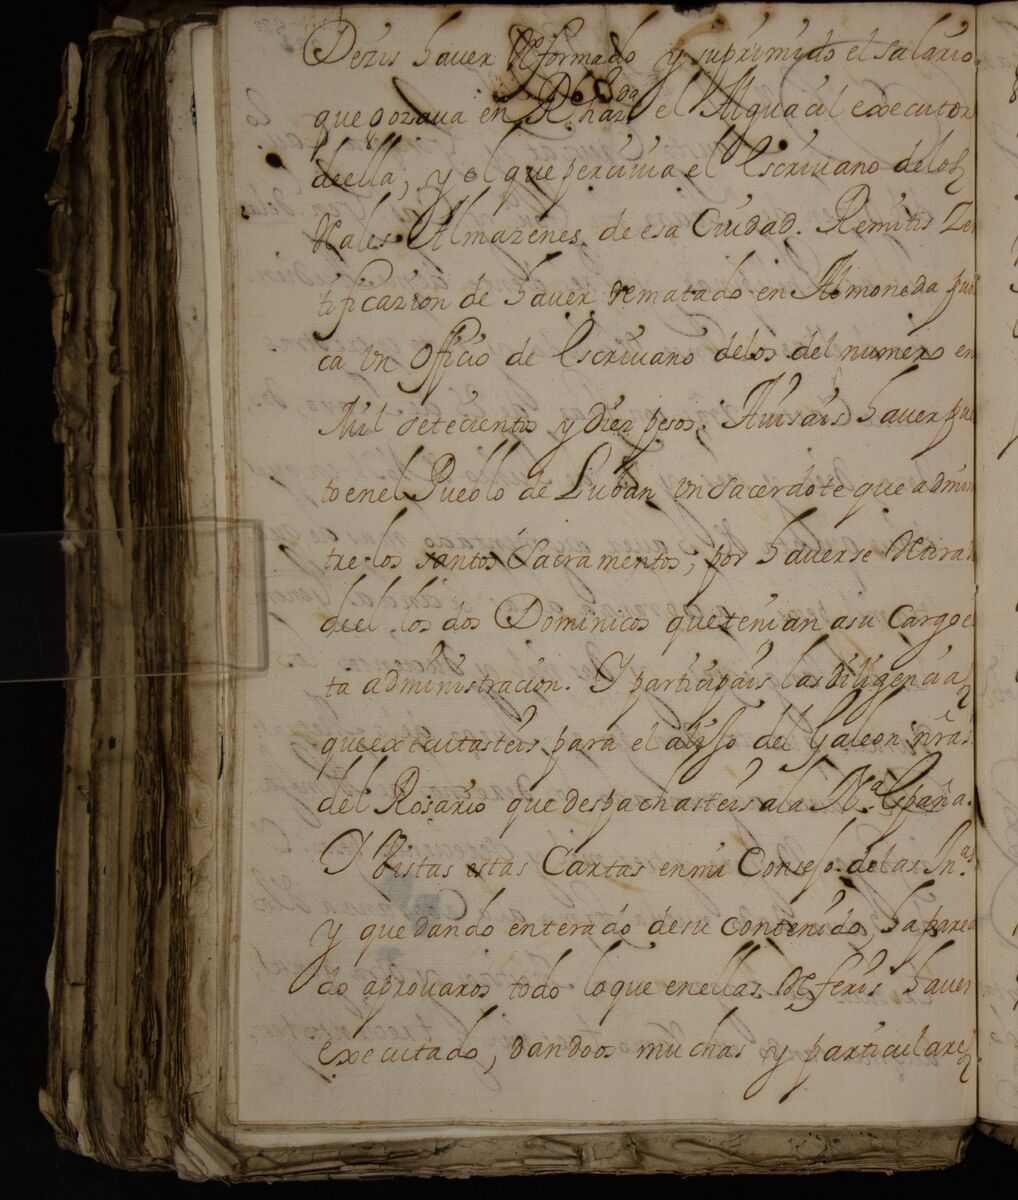 Dezis haver Reformado y suprimido el salario
que gozava en Rl. hazda el Alguacil executor
de ella, y el que percivia el Escrivano de los
Rales Almazenes de esa Ciudad. Remitis Zer
tificazion de haver rematado en Almoneda pub
ca un Officio de Escrivano de los del numero en
Mil setecientos y diez pesos; Avisais haver pues
to en el Pueblo de Luban un Sacerdote que adminis
tre los santos Sacramentos, por haverse Retirado
de el los dos Dominicos que tenian a su Cargo es
ta administracion. Y participais las diligencias
que executasteis para el apresto del Galeon nrã sã
del Rosario que despachasteis a la Na. España.
Y Vistas estas Cartas en mi Consejo de las Inas.
y quedando enterado de su contenido, ha pareci
do aprovaros todo lo que en ellas Referis haver
executado, dandoos muchas y particulares